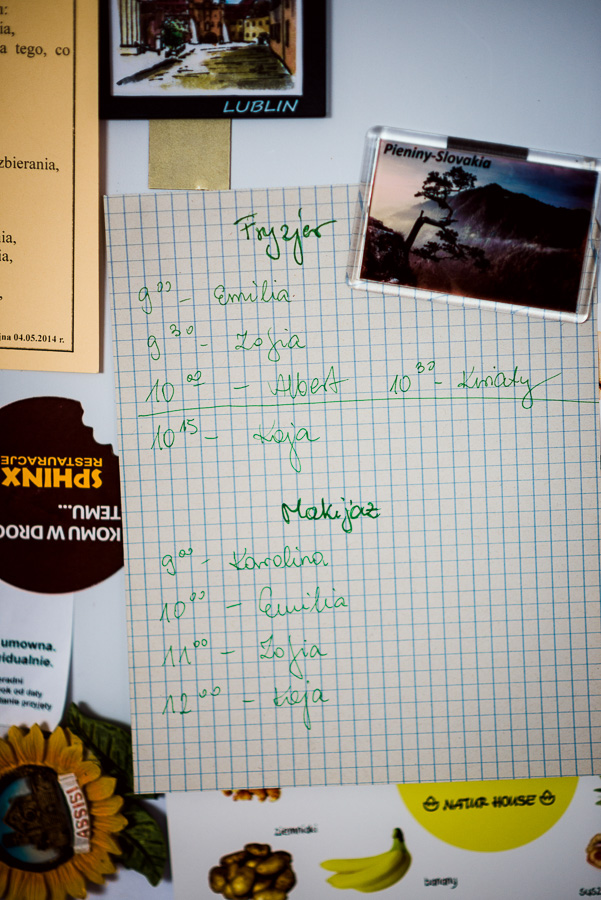 a tego, co
zbierania,
nia,
ia,
jna 04.05.2014 r.
LUBLIN
Pieniny-Slovakia
Fryzjer
9⁰⁰ - Emilia
9³⁰ - Zofia
10⁰⁰ - Albert 10³⁰ - Kwiaty
10¹⁵ - Kaja
Makijaż
9⁰⁰ - Karolina
10⁰⁰ - Emilia
11⁰⁰ - Zofia
12⁰⁰ - Kaja
SPHINX
RESTAURACJE
KOMU W DROG
TEMU...
umowna.
vidualnie.
oradni
rok od daty
danie przyjęty
ASSISI
NATUR HOUSE
ziemniaki
banany
susz